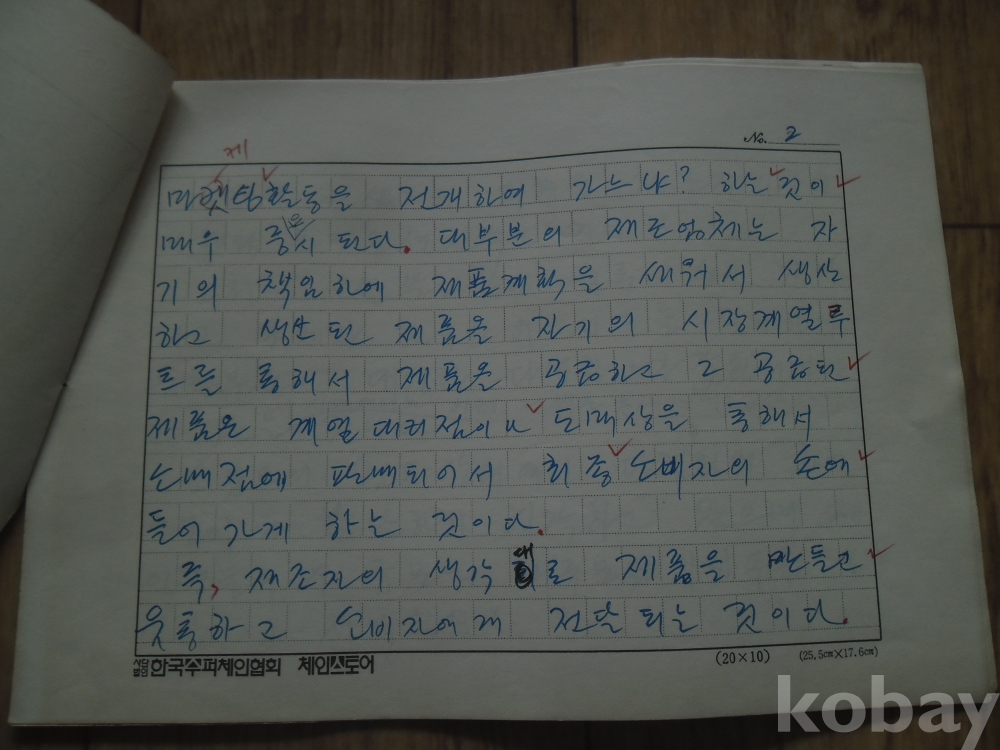 제
No. 2
마켓팅활동을 전개하여 가느냐? 하는 것이
매우 중시된다. 대부분의 제조업체는 자
기의 책임하에 제품계획을 세워서 생산
하고 생산된 제품을 자기의 시장계열루
트를 통해서 제품을 공급하고 그 공급된
제품은 계열대리점이나 도매상을 통해서
소매점에 판매되어서 최종소비자의 손에
들어가게 하는 것이다.
즉, 제조자의 생각대로 제품을 만들고
유통하고 소비자에게 전달되는 것이다.
한국수퍼체인협회 체인스토어
(20×10)
(25.5cm×17.6cm)
kobay